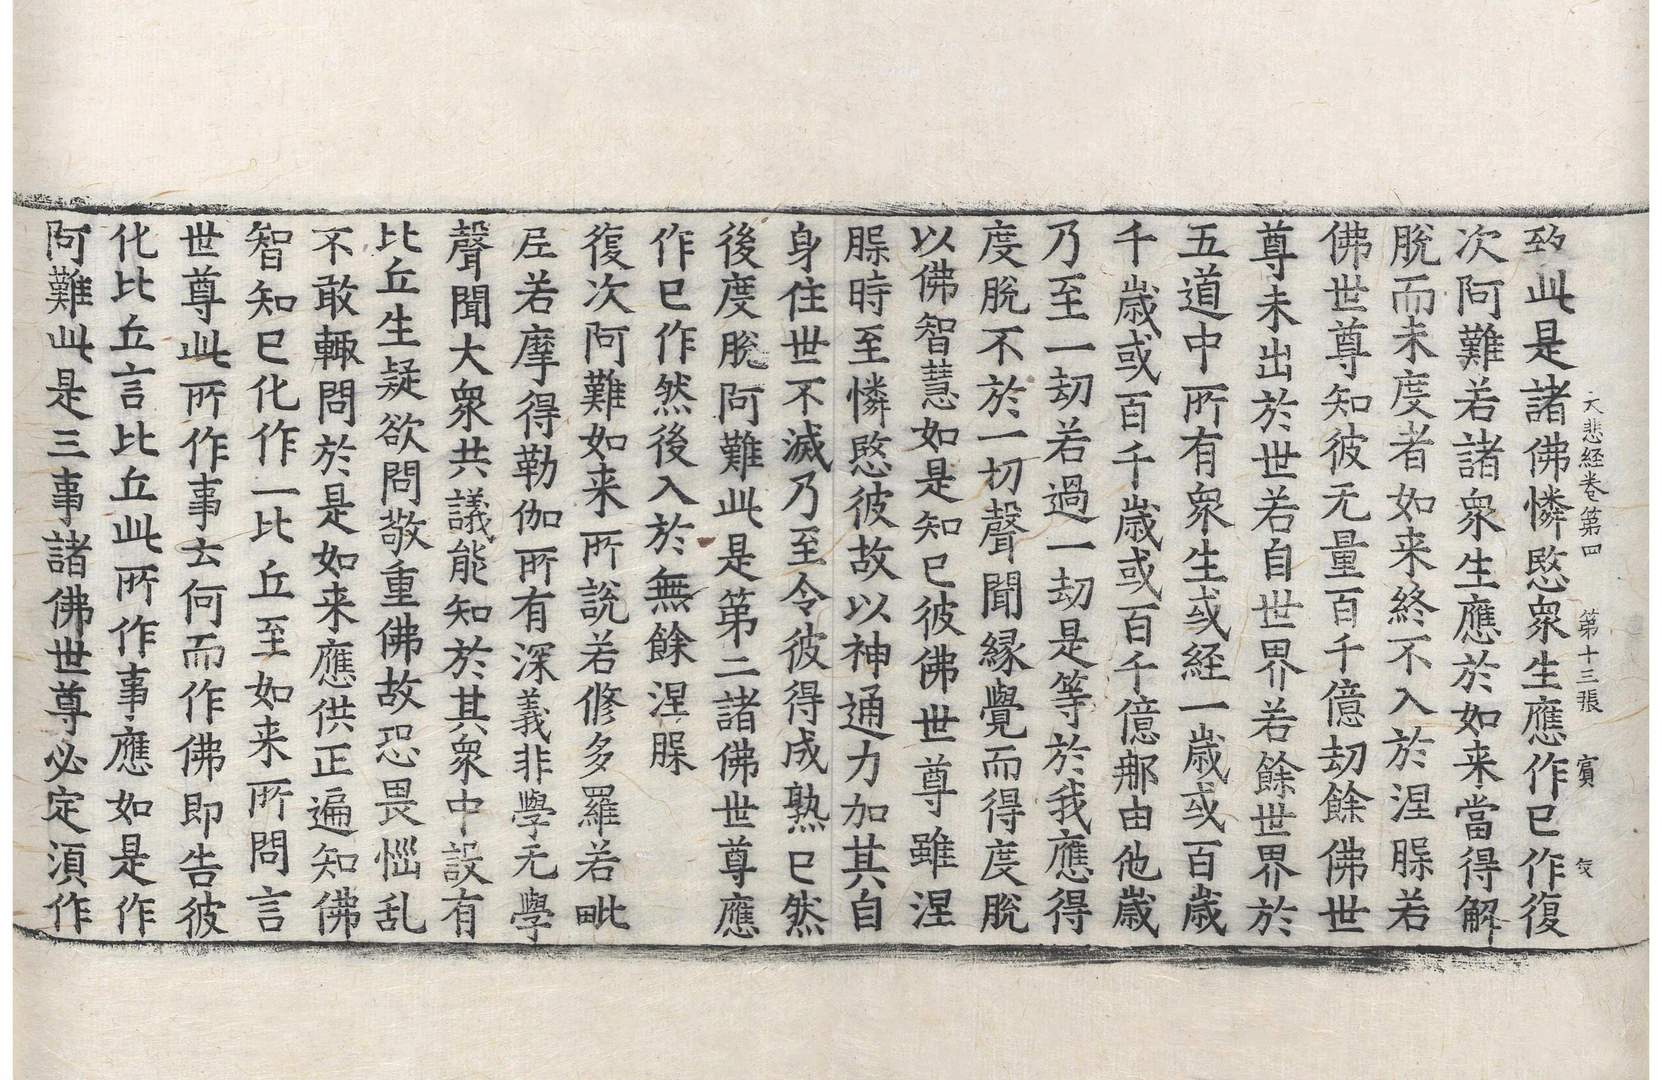 大悲経卷第四　第十三張　賔
致此是諸佛憐愍衆生應作已作復
次阿難若諸衆生應於如来當得解
脫而未度者如来終不入於涅槃若
佛世尊知彼无量百千億劫餘佛世
尊未出於世若自世界若餘世界於
五道中所有衆生或経一歳或百歳
千歳或百千歳或百千億那由他歳
乃至一劫若過一劫是等於我應得
度脫不於一切聲聞緣覺而得度脫
以佛智慧如是知已彼佛世尊雖涅
槃時至憐愍彼故以神通力加其自
身住世不滅乃至令彼得成熟已然
後度脫阿難此是第二諸佛世尊應
作已作然後入於無餘涅槃
復次阿難如来所說若修多羅若毗
尼若摩得勒伽所有深義非學无學
聲聞大衆共議能知於其衆中設有
比丘生疑欲問敬重佛故恐畏惱乱
不敢輙問於是如来應供正遍知佛
智知已化作一比丘至如来所問言
世尊此所作事云何而作佛即告彼
化比丘言比丘此所作事應如是作
阿難此是三事諸佛世尊必定湏作